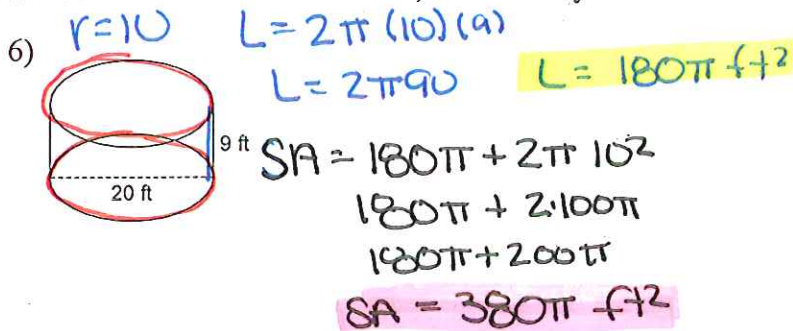 6) r=10
L=2π(10)(9)
L=2π90
L=180πft²
9 ft
20 ft
SA=180π+2π10²
180π+2·100π
180π+200π
SA=380π ft²